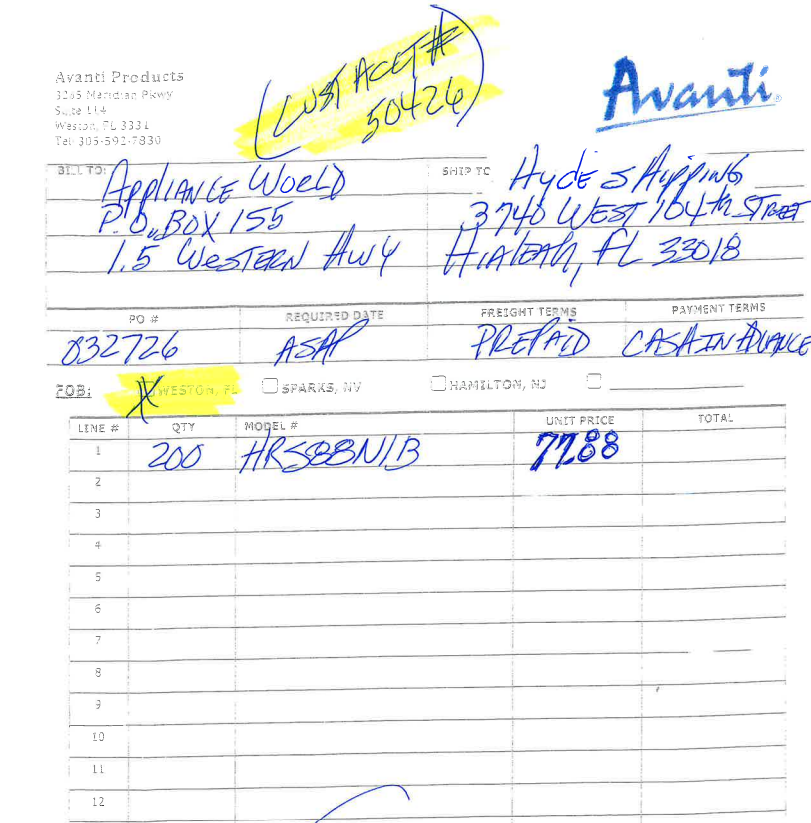 (CUST ACCT #
50426)
Avanti Products
3265 Meridian Pkwy
Suite 114
Weston, FL 3331
Tel: 305-592-7830
Avanti
BILL TO: Appliance World
P.O. BOX 155
1.5 Western Hwy
SHIP TO Hyde Shipping
3740 WEST 104th STREET
HIALEAH, FL 33018
PO # REQUIRED DATE FREIGHT TERMS PAYMENT TERMS
032726 ASAP PREPAID CASH IN ADVANCE
FOB: X WESTON, FL SPARKS, NV HAMILTON, NJ
LINE # QTY MODEL # UNIT PRICE TOTAL
1 200 HRS88N1B 77.88
2
3
4
5
6
7
8
9
10
11
12